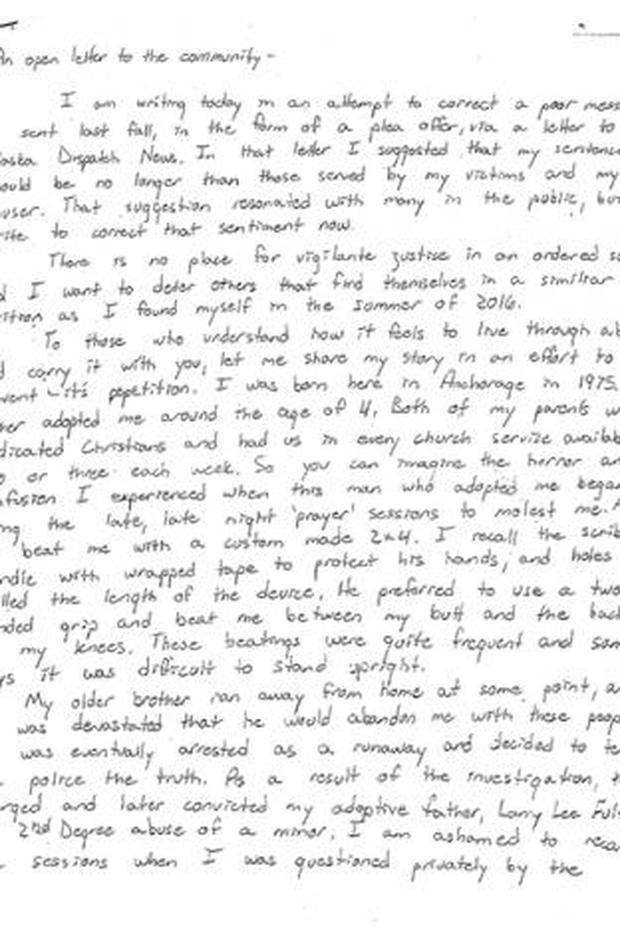 An open letter to the community-
I am writing today in an attempt to correct a poor mess
sent last fall, in the form of a plea offer, via a letter to
aska Dispatch News. In that letter I suggested that my sentence
ould be no longer than those served by my victims and my
user. That suggestion resonated with many in the public, bu
rite to correct that sentiment now.
There is no place for vigilante justice in an ordered so
d I want to deter others that find themselves in a similiar
sition as I found myself in the summer of 2016.
To those who understand how it feels to live through ab
d carry it with you, let me share my story in an effort to
vent it's repetition. I was born here in Anchorage in 1975.
her adopted me around the age of 4. Both of my parents w
dicated Christians and had us in every church service availab
o or three each week. So you can imagine the horror an
nfusion I experienced when this man who adopted me began
ing the late, late night 'prayer' sessions to molest me.
beat me with a custom made 2x4. I recall the scrib
ndle with wrapped tape to protect his hands, and holes
lled the length of the device. He preferred to use a two
nded grip and beat me between my butt and the back
my knees. These beatings were quite frequent and som
ys it was difficult to stand upright.
My older brother ran away from home at some point, an
was devastated that he would abandon me with these peop
was eventually arrested as a runaway and decided to te
police the truth. As a result of the investigation, t
arged and later convicted my adoptive father, Larry Lee Ful
2nd Degree abuse of a minor. I am ashamed to reca
sessions when I was questioned privately by the